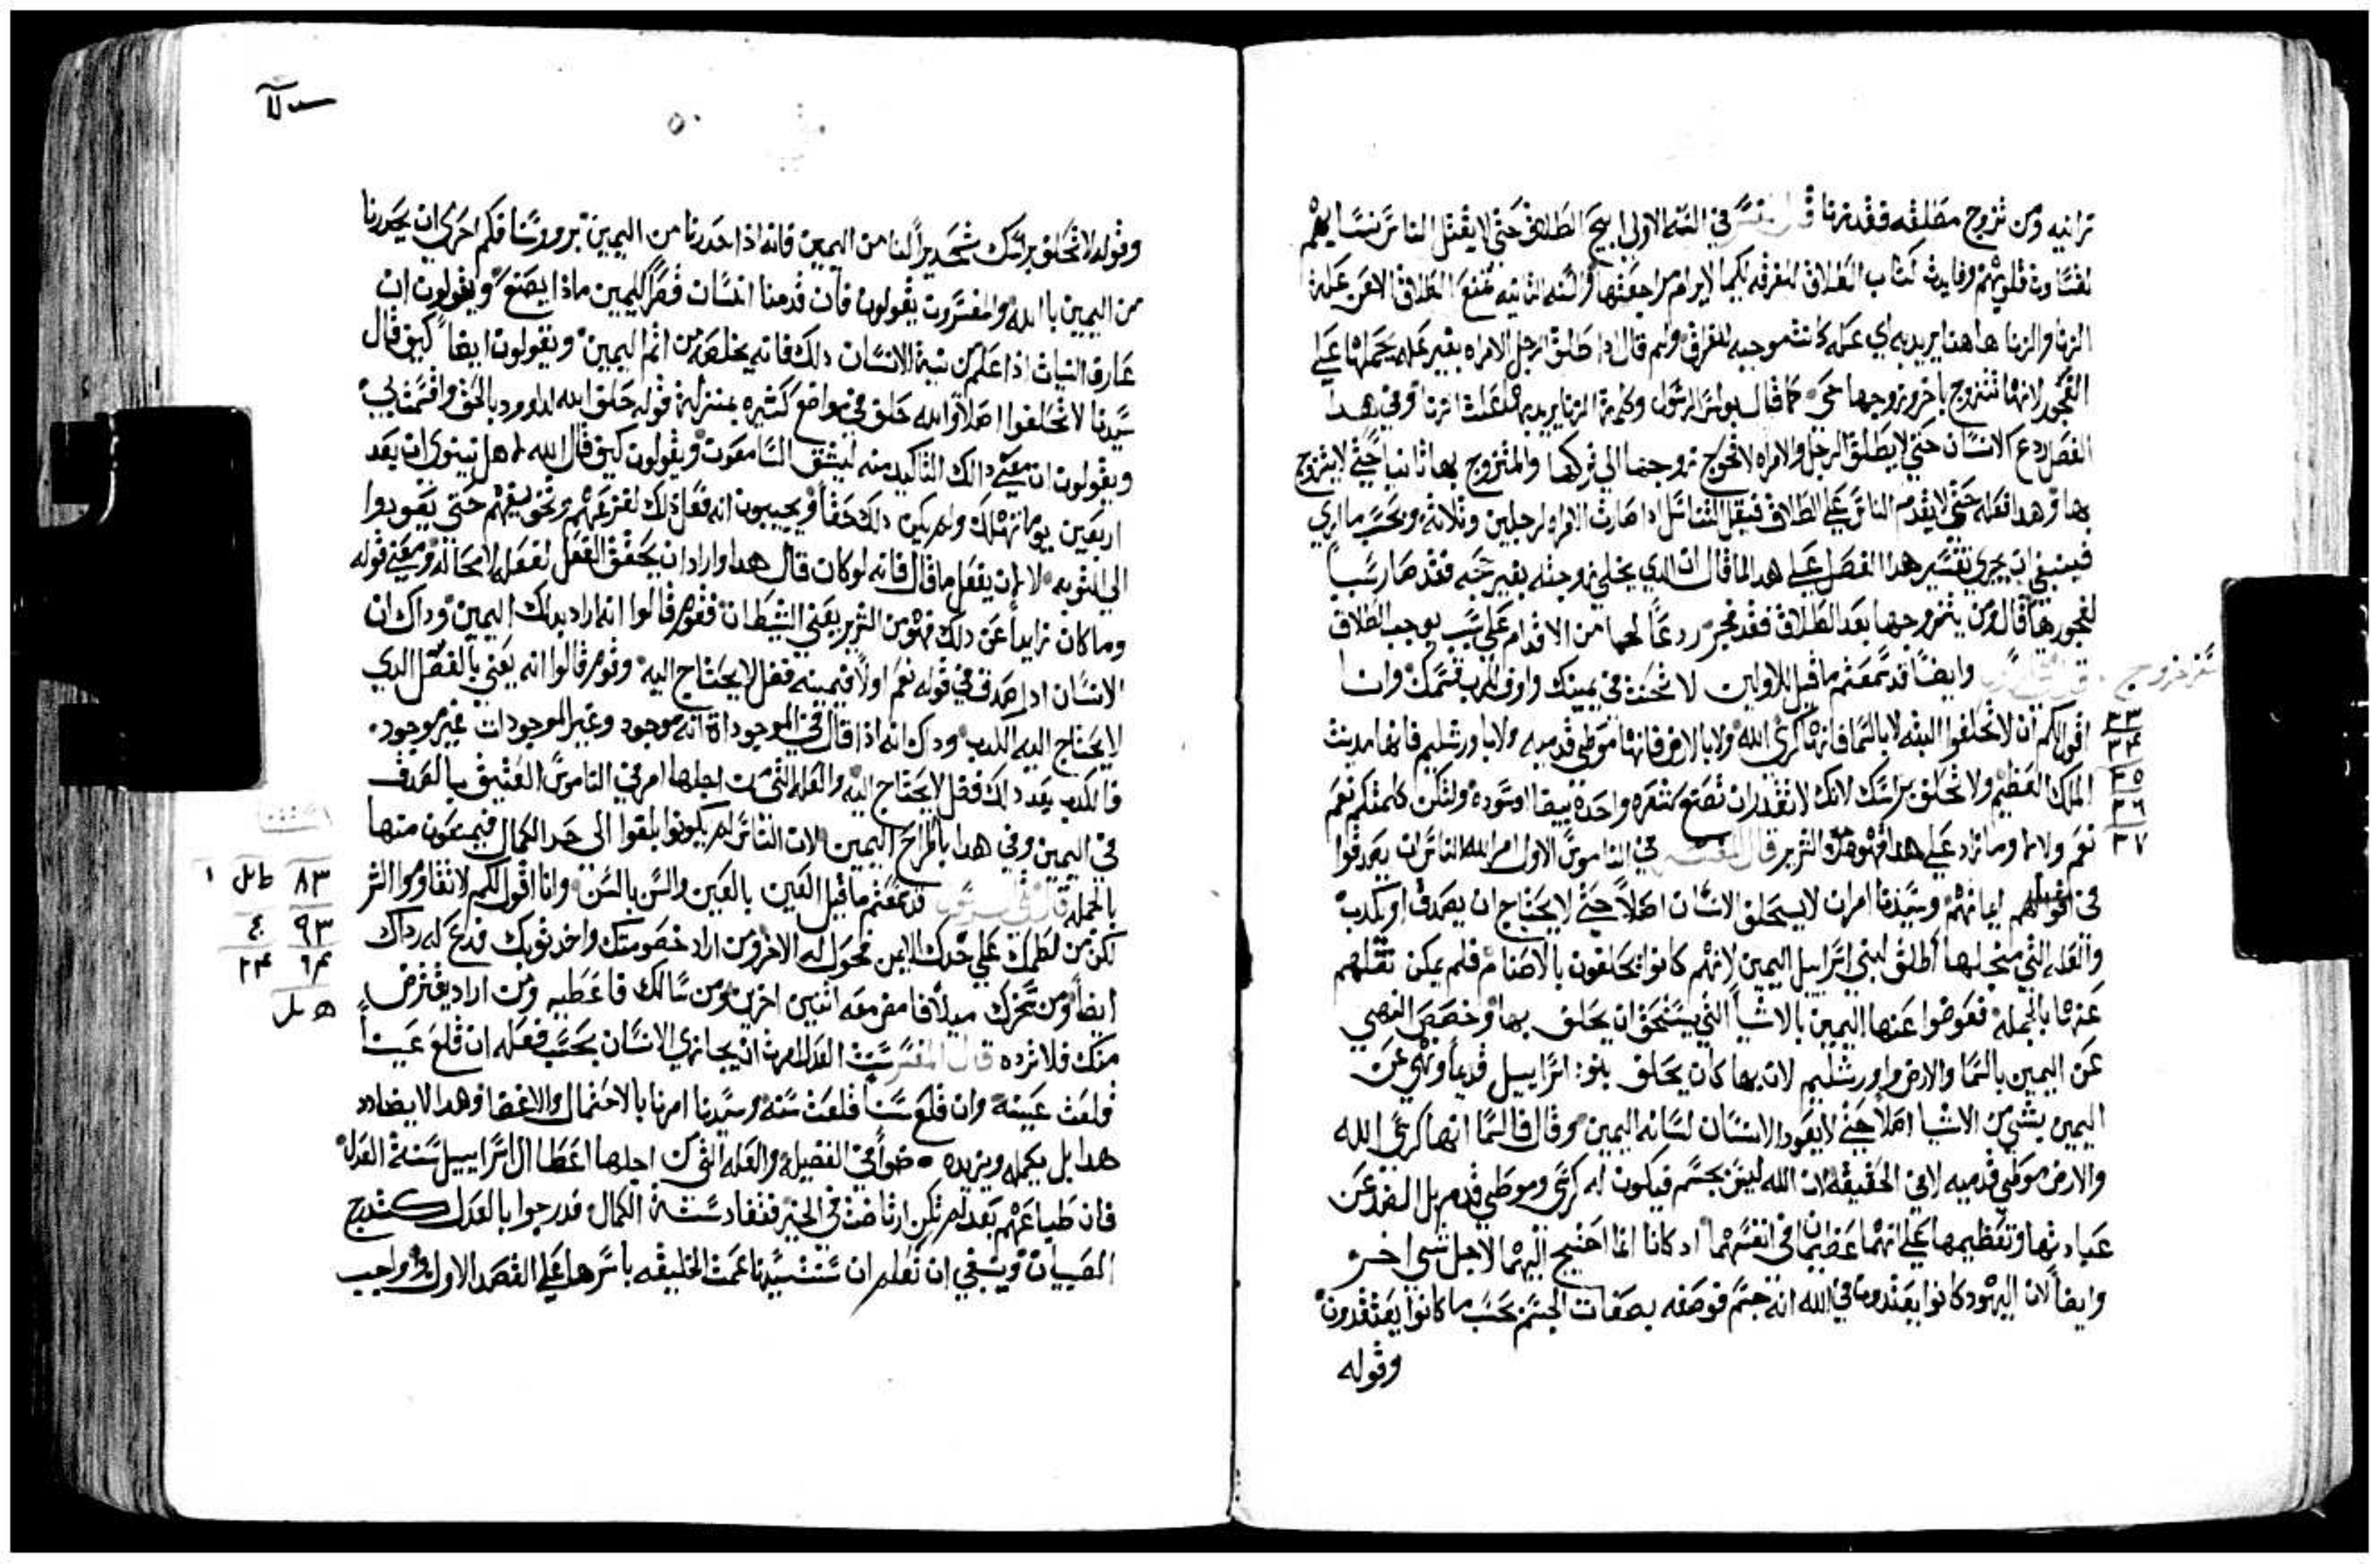 زانيه ومن تزوج مطلقه فقد زنا قال المفسر في السنه الاولي ابيح الطلاق حتي لا يقتل الناس نسايهم
لقساوت قلوبهم وفايدت كتاب الطلاق للفرقه لكيما لا يرام مراجعتها والسنه الثانيه تمنع الطلاق الا عن علة
الزنا والزنا هاهنا يريد به اي عله كانت موجبه للفراق ولم قال اذا طلق الرجل الامراه بغير عله يحملها علي
الفجور لانها تتزوج باخر وزوجها حي كما قال بولس الرسول وكلمة الزنا يريد بها فعلت الزنا وفي هدا
الفصل ردع الانسان حتي لا يطلق الرجل والامراه لا تحوج زوجها الي تركها والمتزوج بها ثانيا حتي لا يتزوج
بها وهدا فعله حتي لا يقدم الناس علي الطلاق فيقل التناسل اذا صارت الامراه لرجلين وثلاثه وبحسب ما اري
فينبغي ان يجري تفسير هدا الفصل علي هدا لما قال ان الدي يخلي زوجته بغير حجه فقد صار سبباً
لفجورها قال ومن يتزوجها بعد الطلاق فقد فجر ردعاً لهما من الاقدام علي سبب يوجب الطلاق
وايضاً قد سمعتم ما قيل للاولين لا تحنث في يمينك واوف للرب قسمك وانا
اقول لكم ان لا تحلفوا البته لا بالسما فانها كرسي الله ولا بالارض فانها موطي قدميه ولا باورشليم فانها مدينت
الملك العظيم ولا تحلف براسك لانك لا تقدر ان تصنع شعره واحدة بيضا او سوده ولتكن كلمتكم نعم
نعم ولا لا وما زاد علي هدا فهو من الشرير قال المفسر في الناموس الاول امر الله الناس ان يصدقوا
في اقوالهم ايمانهم وسيدنا امر ان لا يستحلف الانسان اصلاً حتي لا يحتاج ان يصدق او يكدب
والعله التي من اجلها اطلق لبني اسراييل اليمين لانهم كانوا يحلفون بالاصنام فلم يمكن نقلهم
عنها بالجمله فعوضوا عنها اليمين بالاشيا التي يستحق ان يحلف بها وخصص النهي
عن اليمين بالسما والارض واورشليم لان بها كان يحلف بنو اسراييل قديماً ونهي عن
اليمين بشي من الاشيا اصلاً حتي لا يعود الانسان لسانه اليمين وقال في السما انها كرسي الله
والارض موطي قدميه لا في الحقيقه لان الله ليس بجسم فيكون له كرسي وموطي قدم بل ليصد عن
عبادتها وتعظيمها علي انهما عظيمان في انفسهما اد كانا انما احتيج اليهما لاجل شي اخر
وايضاً لان اليهود كانوا يعتقدون في الله انه جسم فوصفه بصفات الجسم بحسب ما كانوا يعتقدون
وقوله
٣٣
٣٤
٣٥
٣٦
٣٧
وقوله لا تحلف براسك تحديراً لنا من اليمين فانه اذا حدرنا من اليمين بروونسنا فكم احري ان يحدرنا
من اليمين بالله والمفسرون يقولون فان قدمنا انسان قصراً لليمين ماذا يصنع ويقولون ان
عارف النيات اذا علم من نية الانسان دلك فانه يخلصه من اثم اليمين ويقولون ايضاً كيف قال
سيدنا لا تحلفوا اصلاً والله حلف في مواضع كثيره بمنزلة قوله حلف الله لداوود بالحق واقسمت بي
ويقولون ان معني دالك التاكيد منه ليثق السامعون ويقولون كيف قال الله لاهل نينوي ان بعد
اربعين يوماً تهلك ولم يكن دلك حقاً ويجيبون انه فعل دلك لفزعهم وتخويفهم حتي يعودوا
الي التوبه لا لان يفعل ما قال فانه لو كان قال هدا واراد ان يحقق الفعل لفعله لا محاله ومعني قوله
وما كان زايداً عن دلك فهو من الشرير يعني الشيطان فقوم قالوا انه اراد بدلك اليمين وداك ان
الانسان ادا صدق في قوله نعم اولاً فيمينه فضل لا يحتاج اليه وقوم قالوا انه يعني بالفضل الدي
لا يحتاج اليه الكدب ودلك انه اذا قال في الموجوداة انه موجود وغير الموجودات غير موجود
فالكدب بعد دالك فضل لا يحتاج اليه والعله التي من اجلها امر في الناموس العتيق بالصدق
في اليمين وفي هدا باطراح اليمين لان الناس لم يكونوا بلغوا الي حد الكمال فيمنعون منها
بالجمله قد سمعتم ما قيل العين بالعين والسن بالسن وانا اقول لكم لا تقاوموا الشر
لكن من لطمك علي خدك الايمن فحول له الاخر ومن اراد خصومتك واخد ثوبك فدع له رداك
ايضاً ومن سخرك ميلاً فامض معه اثنين اخرين ومن سالك فاعطيه ومن اراد يقترض
منك فلا ترده قال المفسر سنت العدل امرت ان يجازي الانسان بحسب فعله ان قلع عيناً
قلعت عينه وان قلع سناً قلعت سنه وسيدنا امرنا بالاحتمال والاغضا وهدا لا يضادد
هدا بل يكمله ويزيده ضواً في الفضيله والعله التي من اجلها اعطا ال اسراييل سنة العدل
فان طباعهم بعد لم تكن ارتاضت في الخير فتنقاد سنة الكمال فدرجوا بالعدل كتدرج
الصبيان وينبغي ان تعلم ان سنت سيدنا عمت الخليقه باسرها علي القصد الاول وواجب